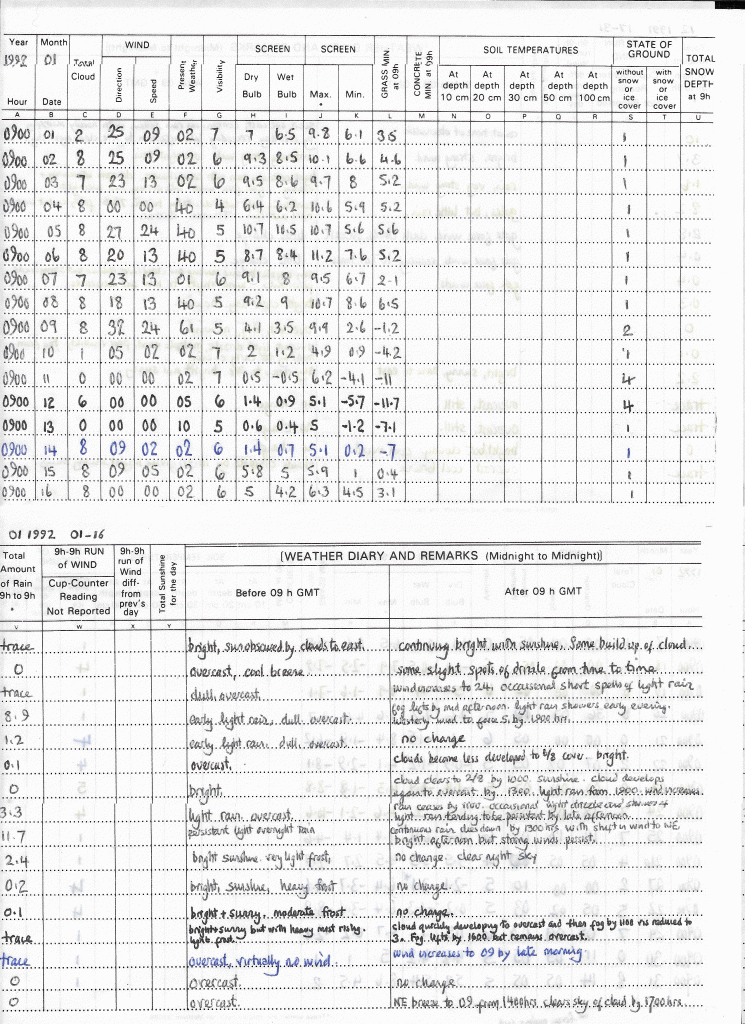 Year Month Total Cloud WIND Present Weather Visibility SCREEN SCREEN GRASS MIN. at 09h CONCRETE MIN. at 09h SOIL TEMPERATURES STATE OF GROUND TOTAL SNOW DEPTH at 9h
1992 01 Direction Speed Dry Bulb Wet Bulb Max. * Min. At depth 10 cm At depth 20 cm At depth 30 cm At depth 50 cm At depth 100 cm without snow or ice cover with snow or ice cover
Hour Date
A B C D E F G H I J K L M N O P Q R S T U
0900 01 2 25 09 02 7 7 6.5 9.8 6.1 3.5 1
0900 02 8 25 09 02 6 9.3 8.5 10.1 6.6 4.6 1
0900 03 7 23 13 02 6 9.5 8.6 9.7 8 5.2 1
0900 04 8 00 00 40 4 6.4 6.2 10.6 5.9 5.2 1
0900 05 8 27 24 40 5 10.7 10.5 10.7 5.6 5.6 1
0900 06 8 20 13 40 5 8.7 8.4 11.2 7.6 5.2 1
0900 07 7 23 13 01 6 9.1 8 9.5 6.7 2.1 1
0900 08 8 18 13 40 5 9.2 9 10.7 8.6 6.5 1
0900 09 8 32 24 61 5 4.1 3.5 9.9 2.6 -1.2 2
0900 10 1 05 02 02 7 2 1.2 4.9 0.9 -4.2 1
0900 11 0 00 00 02 7 0.5 -0.5 6.2 -4.1 -11 4
0900 12 6 00 00 05 6 1.4 0.9 5.1 -5.7 -11.7 4
0900 13 0 00 00 10 5 0.6 0.4 5 -1.2 -7.1 1
0900 14 8 09 02 02 6 1.4 0.7 5.1 0.2 -7 1
0900 15 8 09 05 02 6 5.8 5 5.9 1 0.4 1
0900 16 8 00 00 02 6 5 4.2 6.3 4.5 3.1 1
01 1992 01-16
Total Amount of Rain 9h to 9h * 9h-9h RUN of WIND Cup-Counter Reading Not Reported 9h-9h run of Wind diff- from prev's day Total Sunshine for the day (WEATHER DIARY AND REMARKS (Midnight to Midnight))
Before 09 h GMT After 09 h GMT
V W X Y
trace bright, sun obscured by clouds to east. continuing bright with sunshine. Some build up of cloud
0 overcast, cool breeze some slight spots of drizzle from time to time.
trace dull, overcast. wind increases to 24, occasional short spells of light rain
8.9 early light rain, dull overcast. fog lifts by mid afternoon. light rain showers early evening. westerly wind to force 5 by 1900 hrs.
1.2 early light rain. dull, overcast. no change
0.1 overcast. clouds become less developed to 6/8 cover. bright.
0 bright, cloud clears to 2/8 by 1000. sunshine. cloud develops again to overcast by 1300. light rain from 1800. wind increases
3.3 light rain, overcast. rain ceases by 1100. occasional light drizzle and showers light. rain tending to be persistent by late afternoon.
11.7 persistent light overnight rain continuous rain dies down by 1300 hrs with shift in wind to NE bright afternoon but strong winds persist.
2.4 bright sunshine. very light frost, no change. clear night sky
0.2 bright, sunshine, heavy frost no change.
0.1 bright + sunny, moderate frost no change.
trace bright + sunny but with heavy mist rising. light frost. cloud quickly developing to overcast and then fog by 1100 vis reduced to 3. Fog lifts by 1600 but remains overcast.
trace overcast, virtually no wind wind increases to 09 by late morning
0 overcast. no change
0 overcast. NE breeze to 09 from 1400 hrs clears sky of cloud by 1700 hrs.